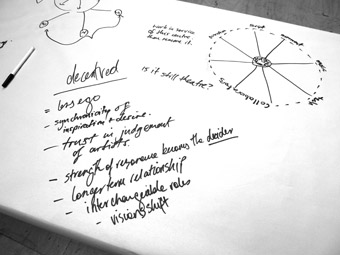 work in service
of this centre,
then remove it.
is it still theatre?
Collaborators
devolved
= loss ego
- synchronicity of
inspiration + desire.
- trust in judgement
of artists.
- strength of response becomes the decider
- longer term relationship
- interchangeable roles
- visions shift